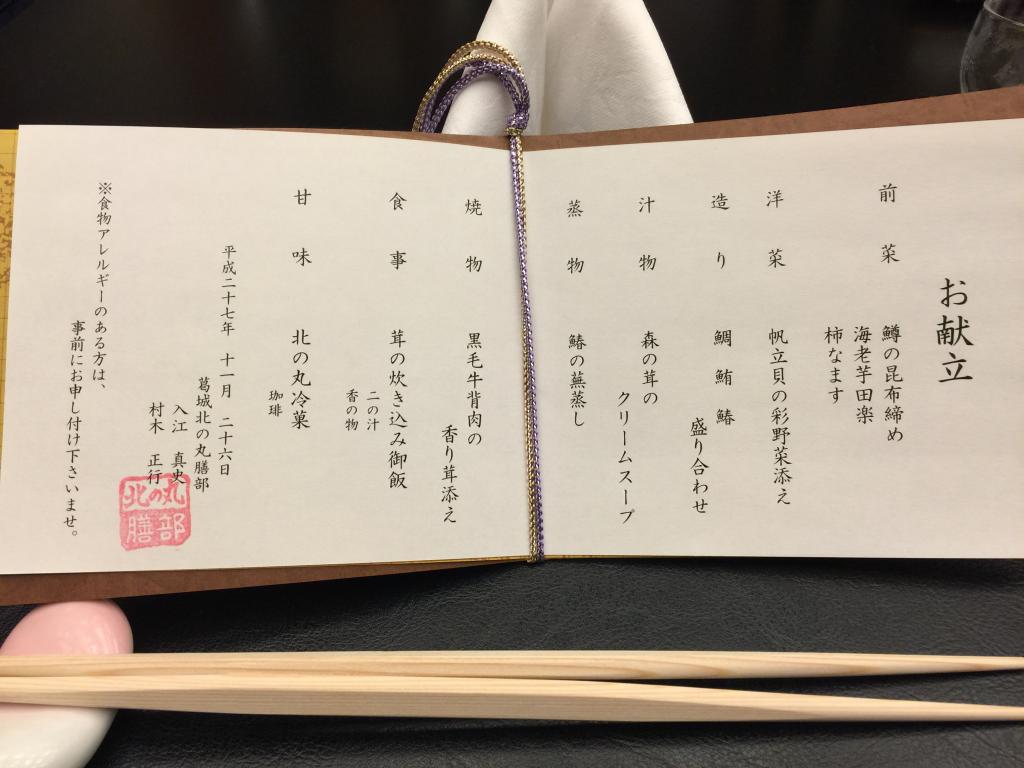 お献立
前菜 鱒の昆布締め
海老芋田楽
柿なます
洋菜 帆立貝の彩野菜添え
造り 鯛 鮪 鰆
盛り合わせ
汁物 森の茸の
クリームスープ
蒸物 鰆の蕪蒸し
焼物 黒毛牛背肉の
香り茸添え
食事 茸の炊き込み御飯
二の汁
香の物
甘味 北の丸冷菓
珈琲
平成二十七年 十一月 二十六日
葛城北の丸膳部
入江 真史
村木 正行
北の丸
膳部
※食物アレルギーのある方は、
事前にお申し付け下さいませ。